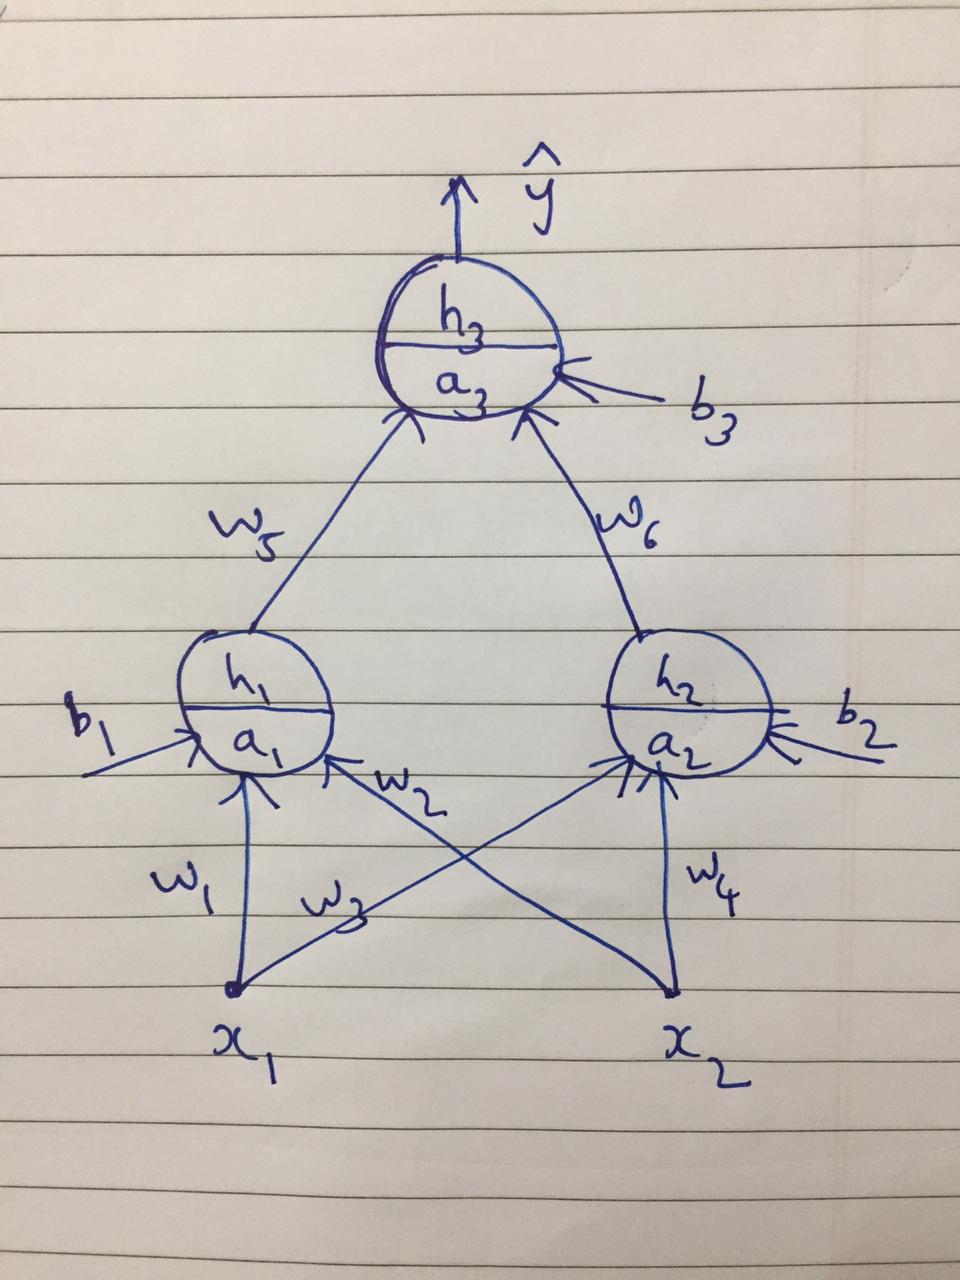 ŷ
h₃
a₃
b₃
w₅ w₆
h₁ h₂
b₁ a₁ a₂ b₂
w₂
w₁ w₃ w₄
x₁ x₂